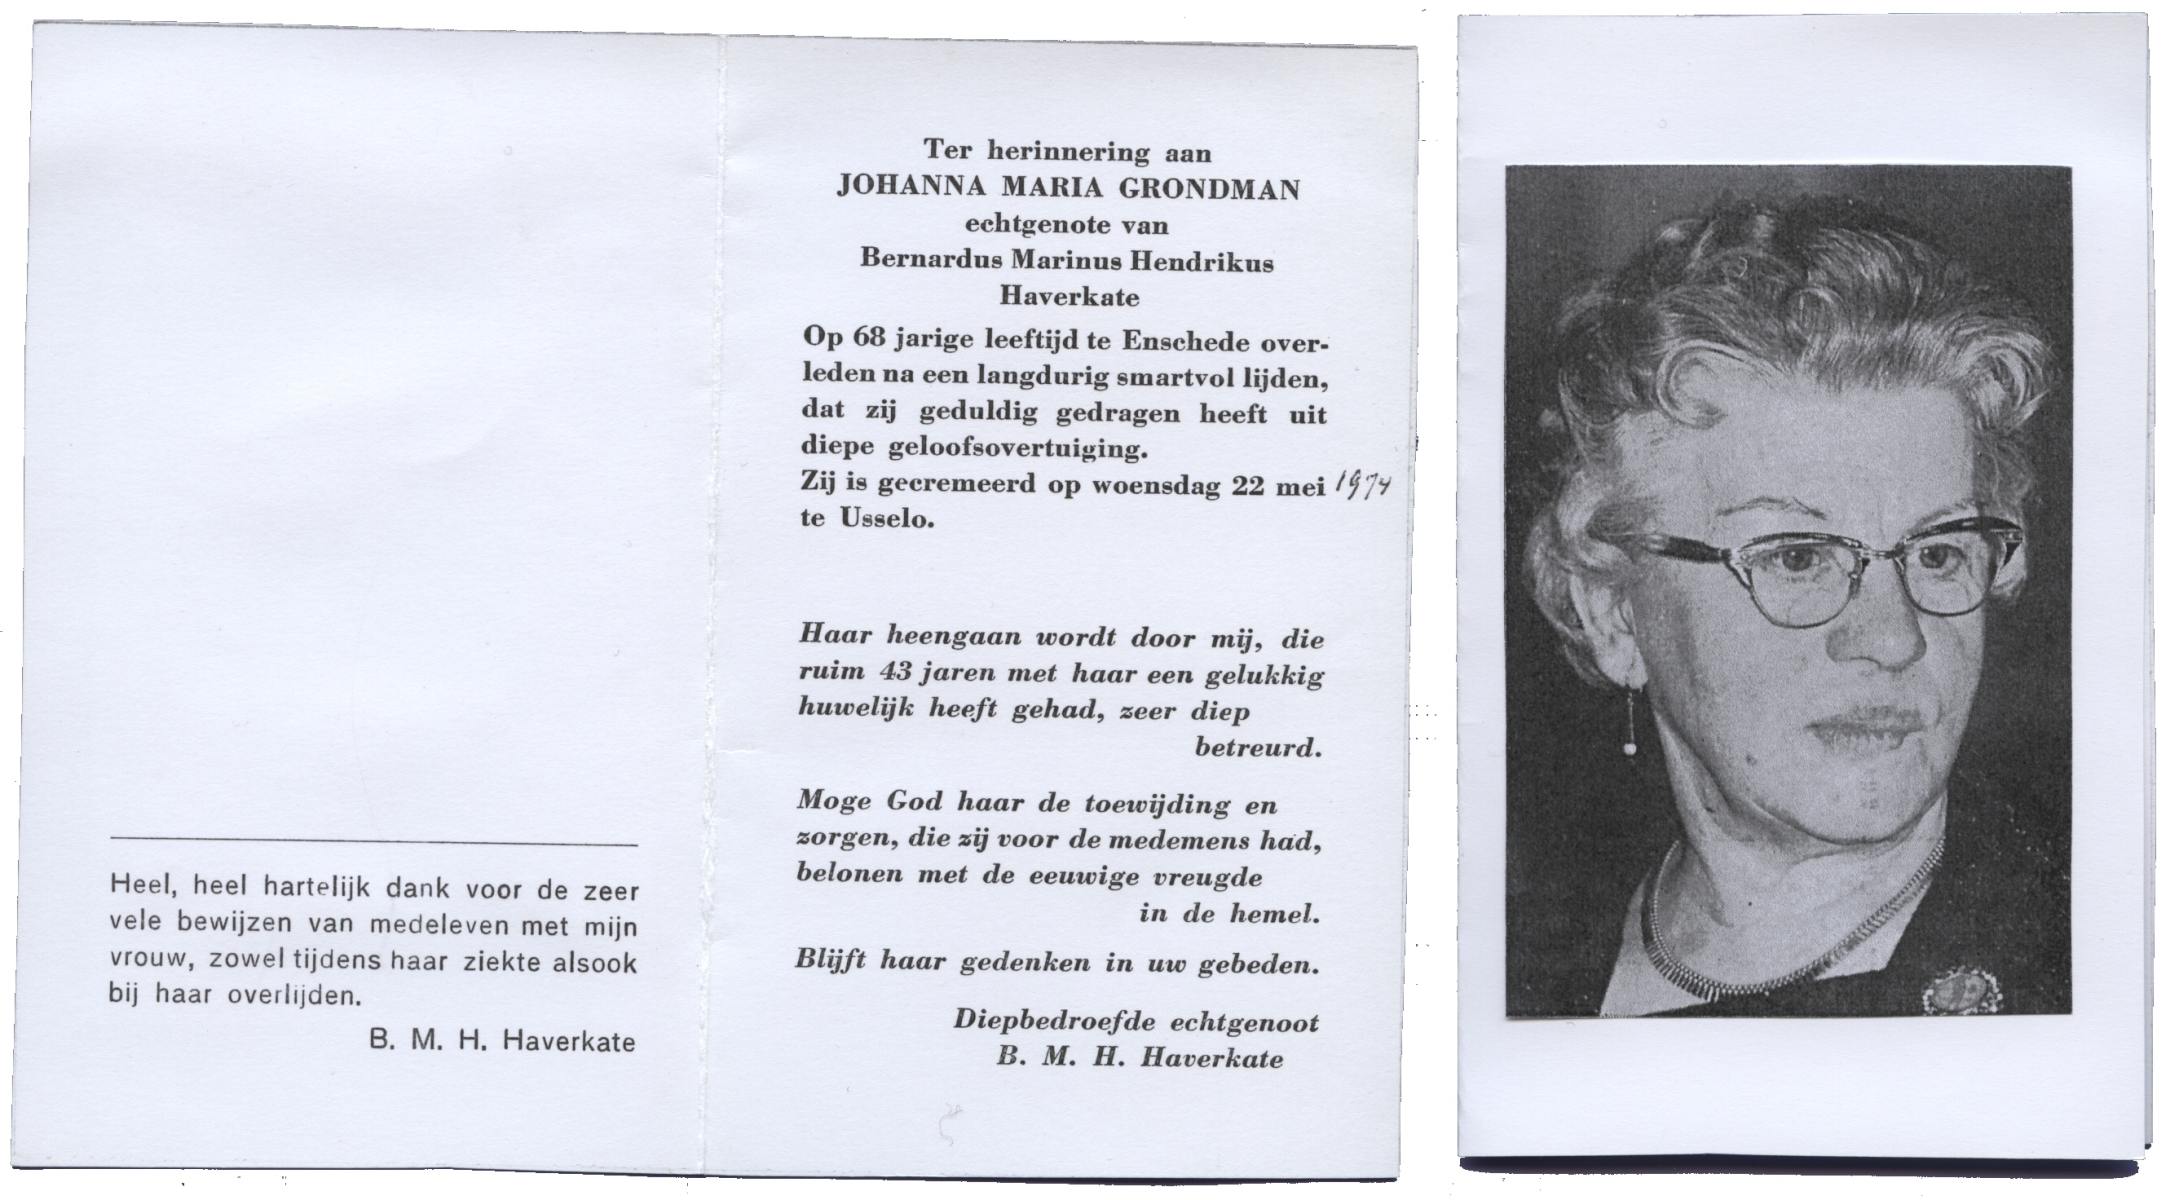 Heel, heel hartelijk dank voor de zeer
vele bewijzen van medeleven met mijn
vrouw, zowel tijdens haar ziekte alsook
bij haar overlijden.
B. M. H. Haverkate
Ter herinnering aan
JOHANNA MARIA GRONDMAN
echtgenote van
Bernardus Marinus Hendrikus
Haverkate
Op 68 jarige leeftijd te Enschede over-
leden na een langdurig smartvol lijden,
dat zij geduldig gedragen heeft uit
diepe geloofsovertuiging.
Zij is gecremeerd op woensdag 22 mei 1974
te Usselo.
Haar heengaan wordt door mij, die
ruim 43 jaren met haar een gelukkig
huwelijk heeft gehad, zeer diep
betreurd.
Moge God haar de toewijding en
zorgen, die zij voor de medemens had,
belonen met de eeuwige vreugde
in de hemel.
Blijft haar gedenken in uw gebeden.
Diepbedroefde echtgenoot
B. M. H. Haverkate